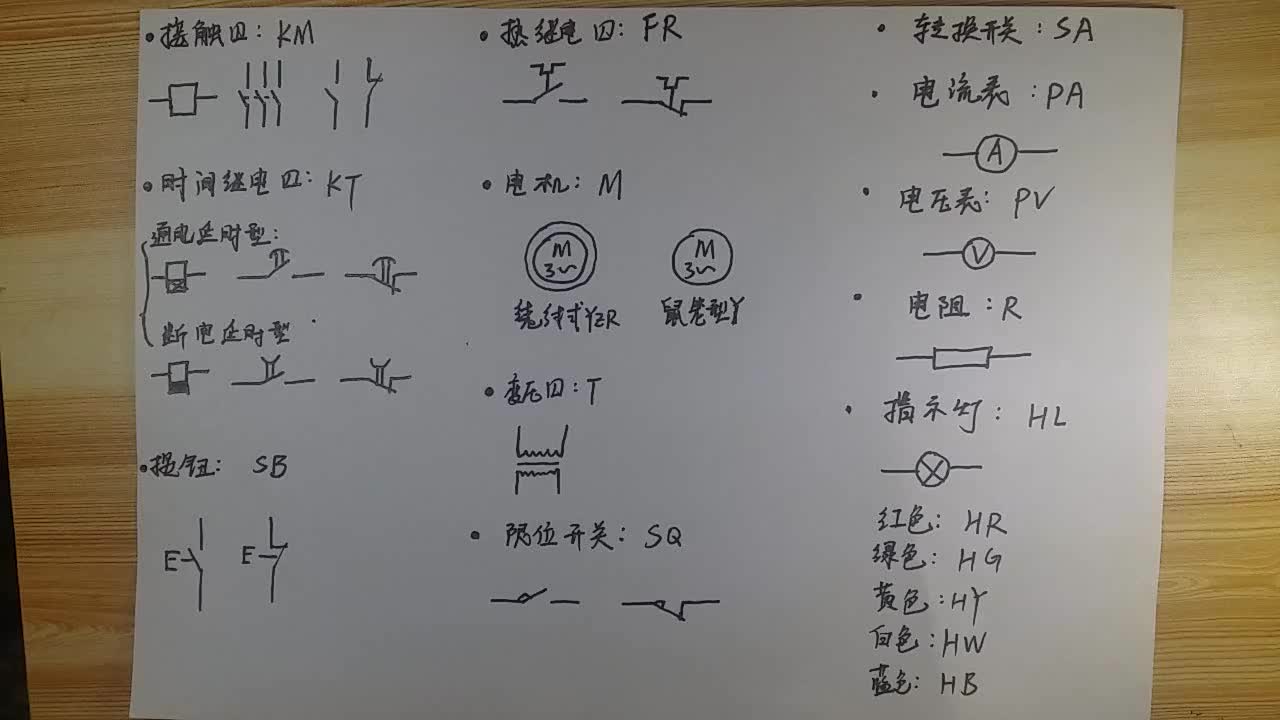 •接触四: KM
•时间继电四: KT
通电延时型:
断电延时型
•按钮: SB
E
E
•热继电四: FR
•电机: M
M
3~
M
3~
绕线式YZR
鼠笼型Y
•变压四: T
•限位开关: SQ
•转换开关: SA
•电流表: PA
A
•电压表: PV
V
•电阻: R
•指示灯: HL
红色: HR
绿色: HG
黄色: HY
白色: HW
蓝色: HB